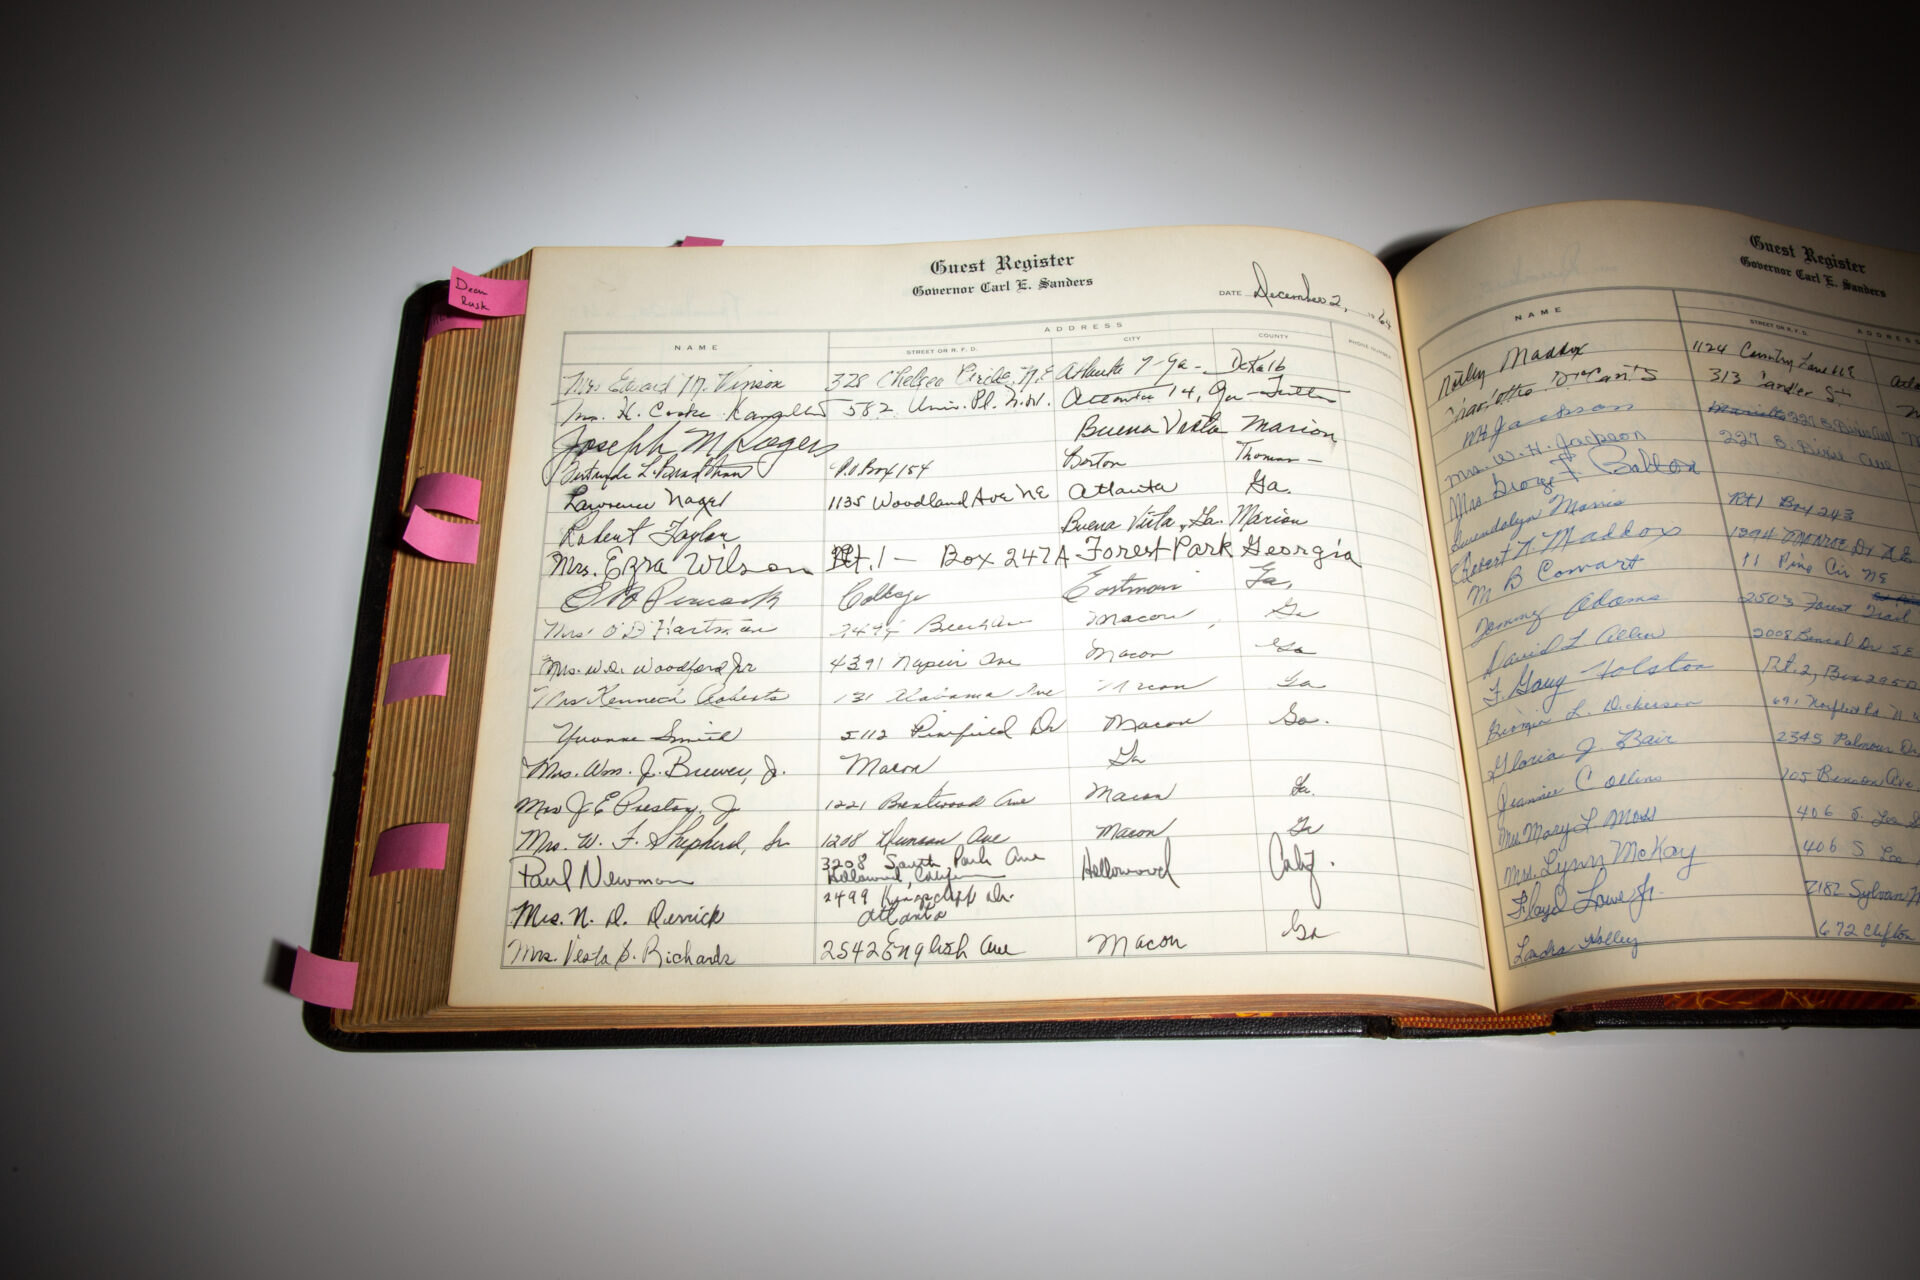 Dean
Rusk
Guest Register
Governor Carl E. Sanders
DATE December 2, 1964
ADDRESS
NAME STREET OR R.F.D. CITY COUNTY PHONE NUMBER
Mrs Edward M. Vinson 328 Chelsea Circle, N.E. Atlanta 7 Ga - DeKalb
Mrs. H. Cooke 582 Univ. Pl. N.W. Atlanta 14, Ga - Fulton
Joseph M Rogers Buena Vista Marion
Gertrude L. P.O. Box 154 Boston Thomas -
Lawrence Nagel 1135 Woodland Ave NE Atlanta Ga.
Robert Taylor Buena Vista, Ga. Marion
Mrs. Ezra Wilson Rt. 1 - Box 247A Forest Park Georgia
Peacock College Eastman Ga.
Mrs O D Hartman Macon, Ga
Mrs. W.A. Woodford Jr 4391 Napier Ave Macon Ga
Mrs Kenneth Roberts 131 Alabama Ave Macon Ga
Yvonne Smith 5112 Pinefield Dr Macon Ga.
Mrs. Wm. J. Brewer, Jr. Macon Ga
Mrs J E Preston, Jr 1221 Brentwood Ave Macon Ga.
Mrs. W. F. Shepherd, Sr 1208 Duncan Ave Macon Ga
Paul Newman 3208 South Park Ave Hollowood Calif.
Hollowood, Calif
Mrs. N. D. Derrick 2499 Kingscliff Dr.
Atlanta
Mrs. Vesta S. Richards 2542 English Ave Macon Ga
Guest Register
Governor Carl E. Sanders
NAME STREET OR R.F.D. ADDRESS
Maddox 1124 Country Lane NE
313 Sandler St
Jackson
Mrs. W. H. Jackson 227 S. Dixie Ave
Mrs. George F. Bolton
Gwendolyn Morris Rt 1 Box 243
Robert N Maddox 1394 Monroe Dr N E
M B Cowart 11 Pine Cir NE
Tommy Adams 2503 Forest Trail
David L Allen 2008 Bencal Dr SE
F. Gary Holston Rt. 2, Box 295
L. Dickerson 691
Gloria J. Bair 2345 Palmour Dr
Jeannie Collins 705 Benson Ave
Mrs Mary L Moss 406 S. Lee
Mrs. Lynn McKay 406 S. Lee
Floyd Lowe Jr. 2182 Sylvan
Landra Holley 672 Clifton